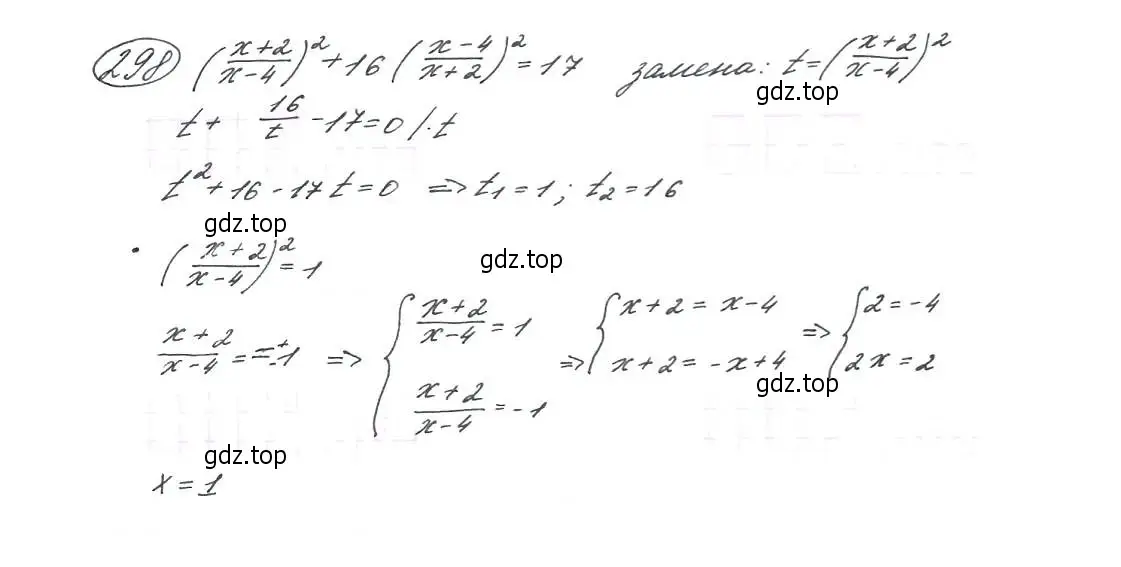 298 ((x+2)/(x-4))² + 16((x-4)/(x+2))² = 17 замена: t = ((x+2)/(x-4))²
gdz.top
t + 16/t - 17 = 0 /·t
t² + 16 - 17t = 0 => t₁ = 1; t₂ = 16
gdz.top
• ((x+2)/(x-4))² = 1
gdz.top
(x+2)/(x-4) = ±1 => { (x+2)/(x-4) = 1 => { x+2 = x-4 => { 2 = -4
(x+2)/(x-4) = -1 x+2 = -x+4 2x = 2
gdz.top
gdz.top
x = 1